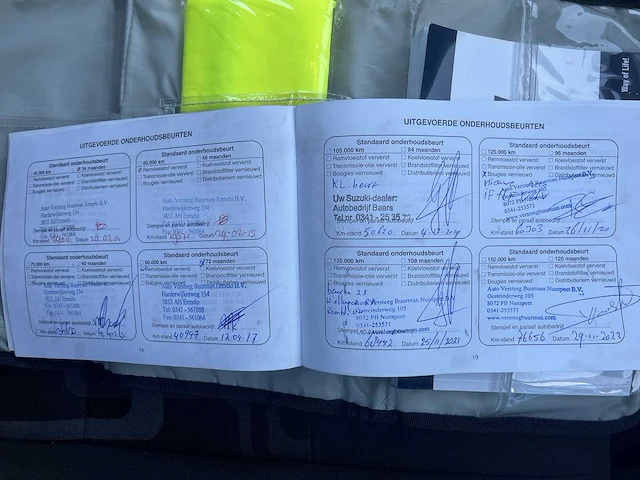 Way of Life!
UITGEVOERDE ONDERHOUDSBEURTEN
Standaard onderhoudsbeurt
45.000 km 36 maanden
Remvloeistof ververst Koelvloeistof ververst
Transmissie-olie ververst Brandstoffilter vernieuwd
Bougies vernieuwd Distributieriem vernieuwd
Auto Versteeg Buurman Ermelo B.V.
Harderwijkerweg 154
3852 AH Ermelo
Stempel en paraaf autobedrijf
Km-stand Datum
Standaard onderhoudsbeurt
60.000 km 48 maanden
Remvloeistof ververst Koelvloeistof ververst
Transmissie-olie ververst Brandstoffilter vernieuwd
Bougies vernieuwd Distributieriem vernieuwd
Auto Versteeg Buurman Ermelo B.V.
Harderwijkerweg 154
3852 AH Ermelo
Stempel en paraaf autobedrijf
Fax: 0341 - 561064
Km-stand Datum 24-02-15
Standaard onderhoudsbeurt
75.000 km 60 maanden
Remvloeistof ververst Koelvloeistof ververst
Transmissie-olie ververst Brandstoffilter vernieuwd
Bougies vernieuwd Distributieriem vernieuwd
Auto Versteeg Buurman Ermelo B.V.
Harderwijkerweg 154
3852 AH Ermelo
Tel: 0341 - 561000
Fax: 0341 - 561064
Stempel en paraaf autobedrijf
Km-stand Datum
Standaard onderhoudsbeurt
90.000 km 72 maanden
Remvloeistof ververst Koelvloeistof ververst
Transmissie-olie ververst Brandstoffilter vernieuwd
Bougies vernieuwd Distributieriem vernieuwd
Auto Versteeg Buurman Ermelo B.V.
Harderwijkerweg 154
3852 AH Ermelo
Tel: 0341 - 561000
Fax: 0341 - 561064
Stempel en paraaf autobedrijf
Km-stand 40947 Datum 12-04-17
18
UITGEVOERDE ONDERHOUDSBEURTEN
Standaard onderhoudsbeurt
105.000 km 84 maanden
Remvloeistof ververst Koelvloeistof ververst
Transmissie-olie ververst Brandstoffilter vernieuwd
Bougies vernieuwd Distributieriem vernieuwd
KL. beurt
Uw Suzuki-dealer:
Autobedrijf Baars
Tel.nr. 0341 - 25 35 7
Stempel en paraaf autobedrijf
Km-stand 50620 Datum
Standaard onderhoudsbeurt
120.000 km 96 maanden
Remvloeistof ververst Koelvloeistof ververst
Transmissie-olie ververst Brandstoffilter vernieuwd
Bougies vernieuwd Distributieriem vernieuwd
8072 PB Nunspeet
0341-253571
Stempel en paraaf autobedrijf
Km-stand Datum 26/11/20
Standaard onderhoudsbeurt
135.000 km 108 maanden
Remvloeistof ververst Koelvloeistof ververst
Transmissie-olie ververst Brandstoffilter vernieuwd
Bougies vernieuwd Distributieriem vernieuwd
Versteeg Buurman Nunspeet B.V.
Oosteinderweg 105
8072 PB Nunspeet
0341-253571
Stempel en paraaf autobedrijf
Km-stand Datum 25/11/2021
Standaard onderhoudsbeurt
150.000 km 120 maanden
Remvloeistof ververst Koelvloeistof ververst
Transmissie-olie ververst Brandstoffilter vernieuwd
Bougies vernieuwd Distributieriem vernieuwd
Auto Versteeg Buurman Nunspeet B.V.
Oosteinderweg 105
8072 PB Nunspeet
0341-253571
Stempel en paraaf autobedrijf
Km-stand 76656 Datum 29-11-2022
19